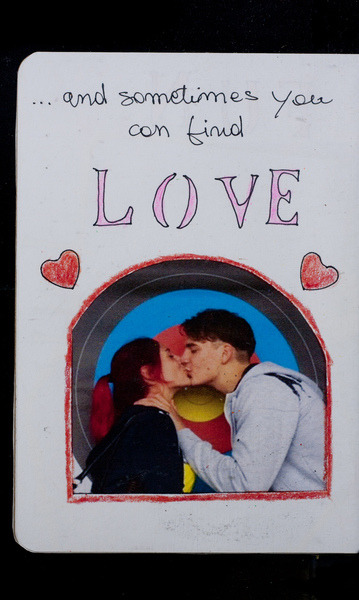 ... and sometimes you
can find
LOVE